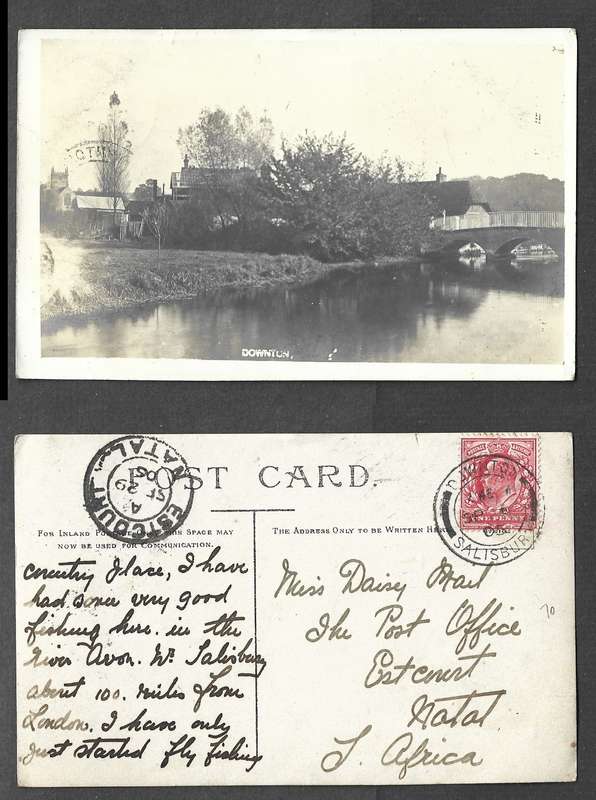 DOWNTON,
POST CARD.
ESTCOURT NATAL
A
SP 29
05
ONE PENNY
DOWNTON
SALISBURY
For Inland Postage only this Space may
now be used for Communication.
The Address Only to be Written Here
country place, I have
had some very good
fishing here. in the
River Avon. Nr. Salisbury
about 100. miles from
London. I have only
just started fly fishing
Miss Daisy
The Post Office
Estcourt
Natal
S. Africa
70